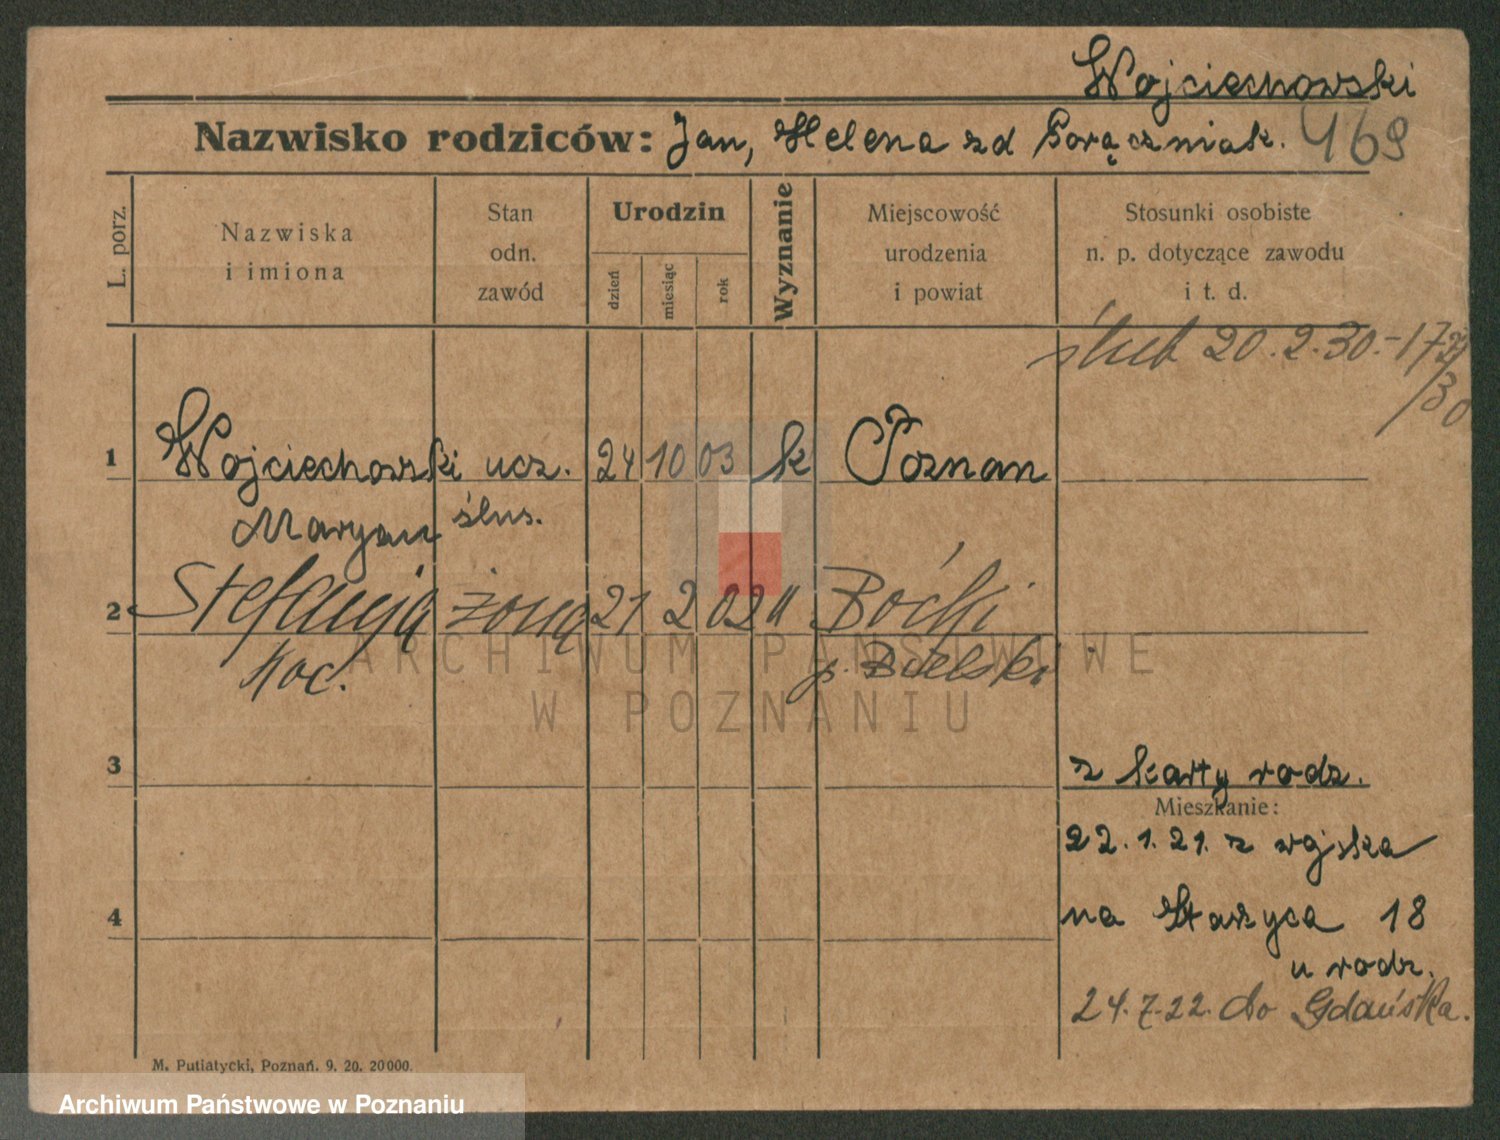 Wojciechowski
Nazwisko rodziców: Jan, Helena zd Porączniak. 469
L. porz.
Nazwiska
i imiona
Stan
odn.
zawód
Urodzin
dzień
miesiąc
rok
Wyznanie
Miejscowość
urodzenia
i powiat
Stosunki osobiste
n. p. dotyczące zawodu
i t. d.
ślub 20.2.30.-
/30
1 Wojciechowski ucz. 24 10 03 k Poznan
Maryan ślus.
2 Stefanja żona 21 2 02 "
Koc. p. Bielski
3 z karty rodz.
Mieszkanie:
22.1.21. z wojska
na Staszyca 18
4
u rodz.
24.7.22. do Gdańska.
M. Putiatycki, Poznań. 9. 20. 20000.
ARCHIWUM PAŃSTWOWE
W POZNANIU
Archiwum Państwowe w Poznaniu